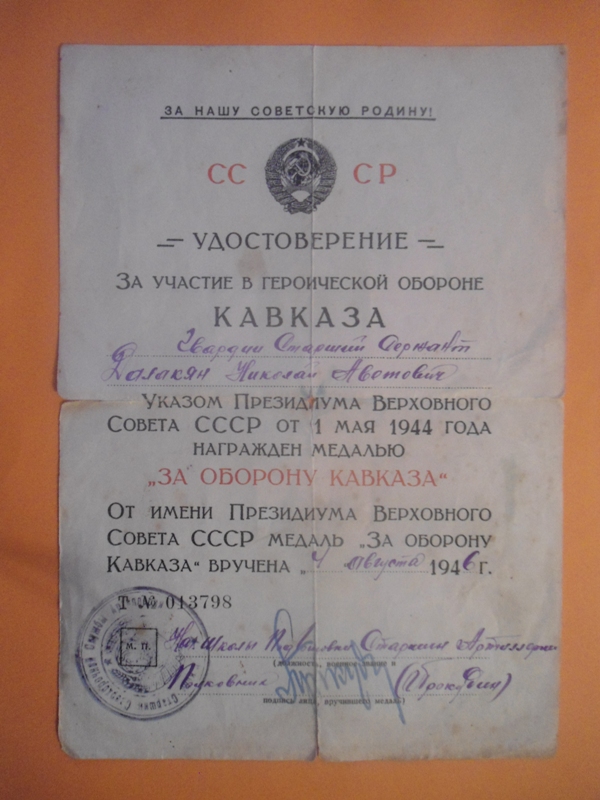 ЗА НАШУ СОВЕТСКУЮ РОДИНУ!
СССР
УДОСТОВЕРЕНИЕ
ЗА УЧАСТИЕ В ГЕРОИЧЕСКОЙ ОБОРОНЕ
КАВКАЗА
Гвардии Старший Сержант
Далакян Николай Авотович
УКАЗОМ ПРЕЗИДИУМА ВЕРХОВНОГО
СОВЕТА СССР ОТ 1 МАЯ 1944 ГОДА
НАГРАЖДЕН МЕДАЛЬЮ
„ЗА ОБОРОНУ КАВКАЗА“
ОТ ИМЕНИ ПРЕЗИДИУМА ВЕРХОВНОГО
СОВЕТА СССР МЕДАЛЬ „ЗА ОБОРОНУ
КАВКАЗА“ ВРУЧЕНА „7 Августа 1946 г.
Т № 013798
М. П.
Нач. Школы Старшин Артиллерии
Полковник
подпись лица, вручившего медаль)